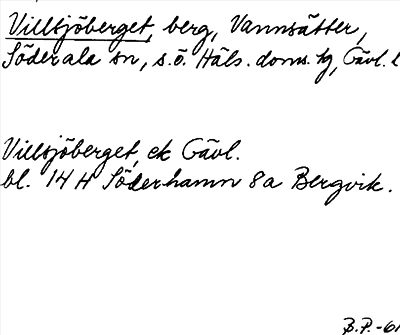 Villsjöberget, berg, Vannsätter,
Söderala sn, s.ö. Häls. doms. tg, Gävl. l
Villsjöberget, ek Gävl.
bl. 14 H Söderhamn 8a Bergvik.
B.P.-61